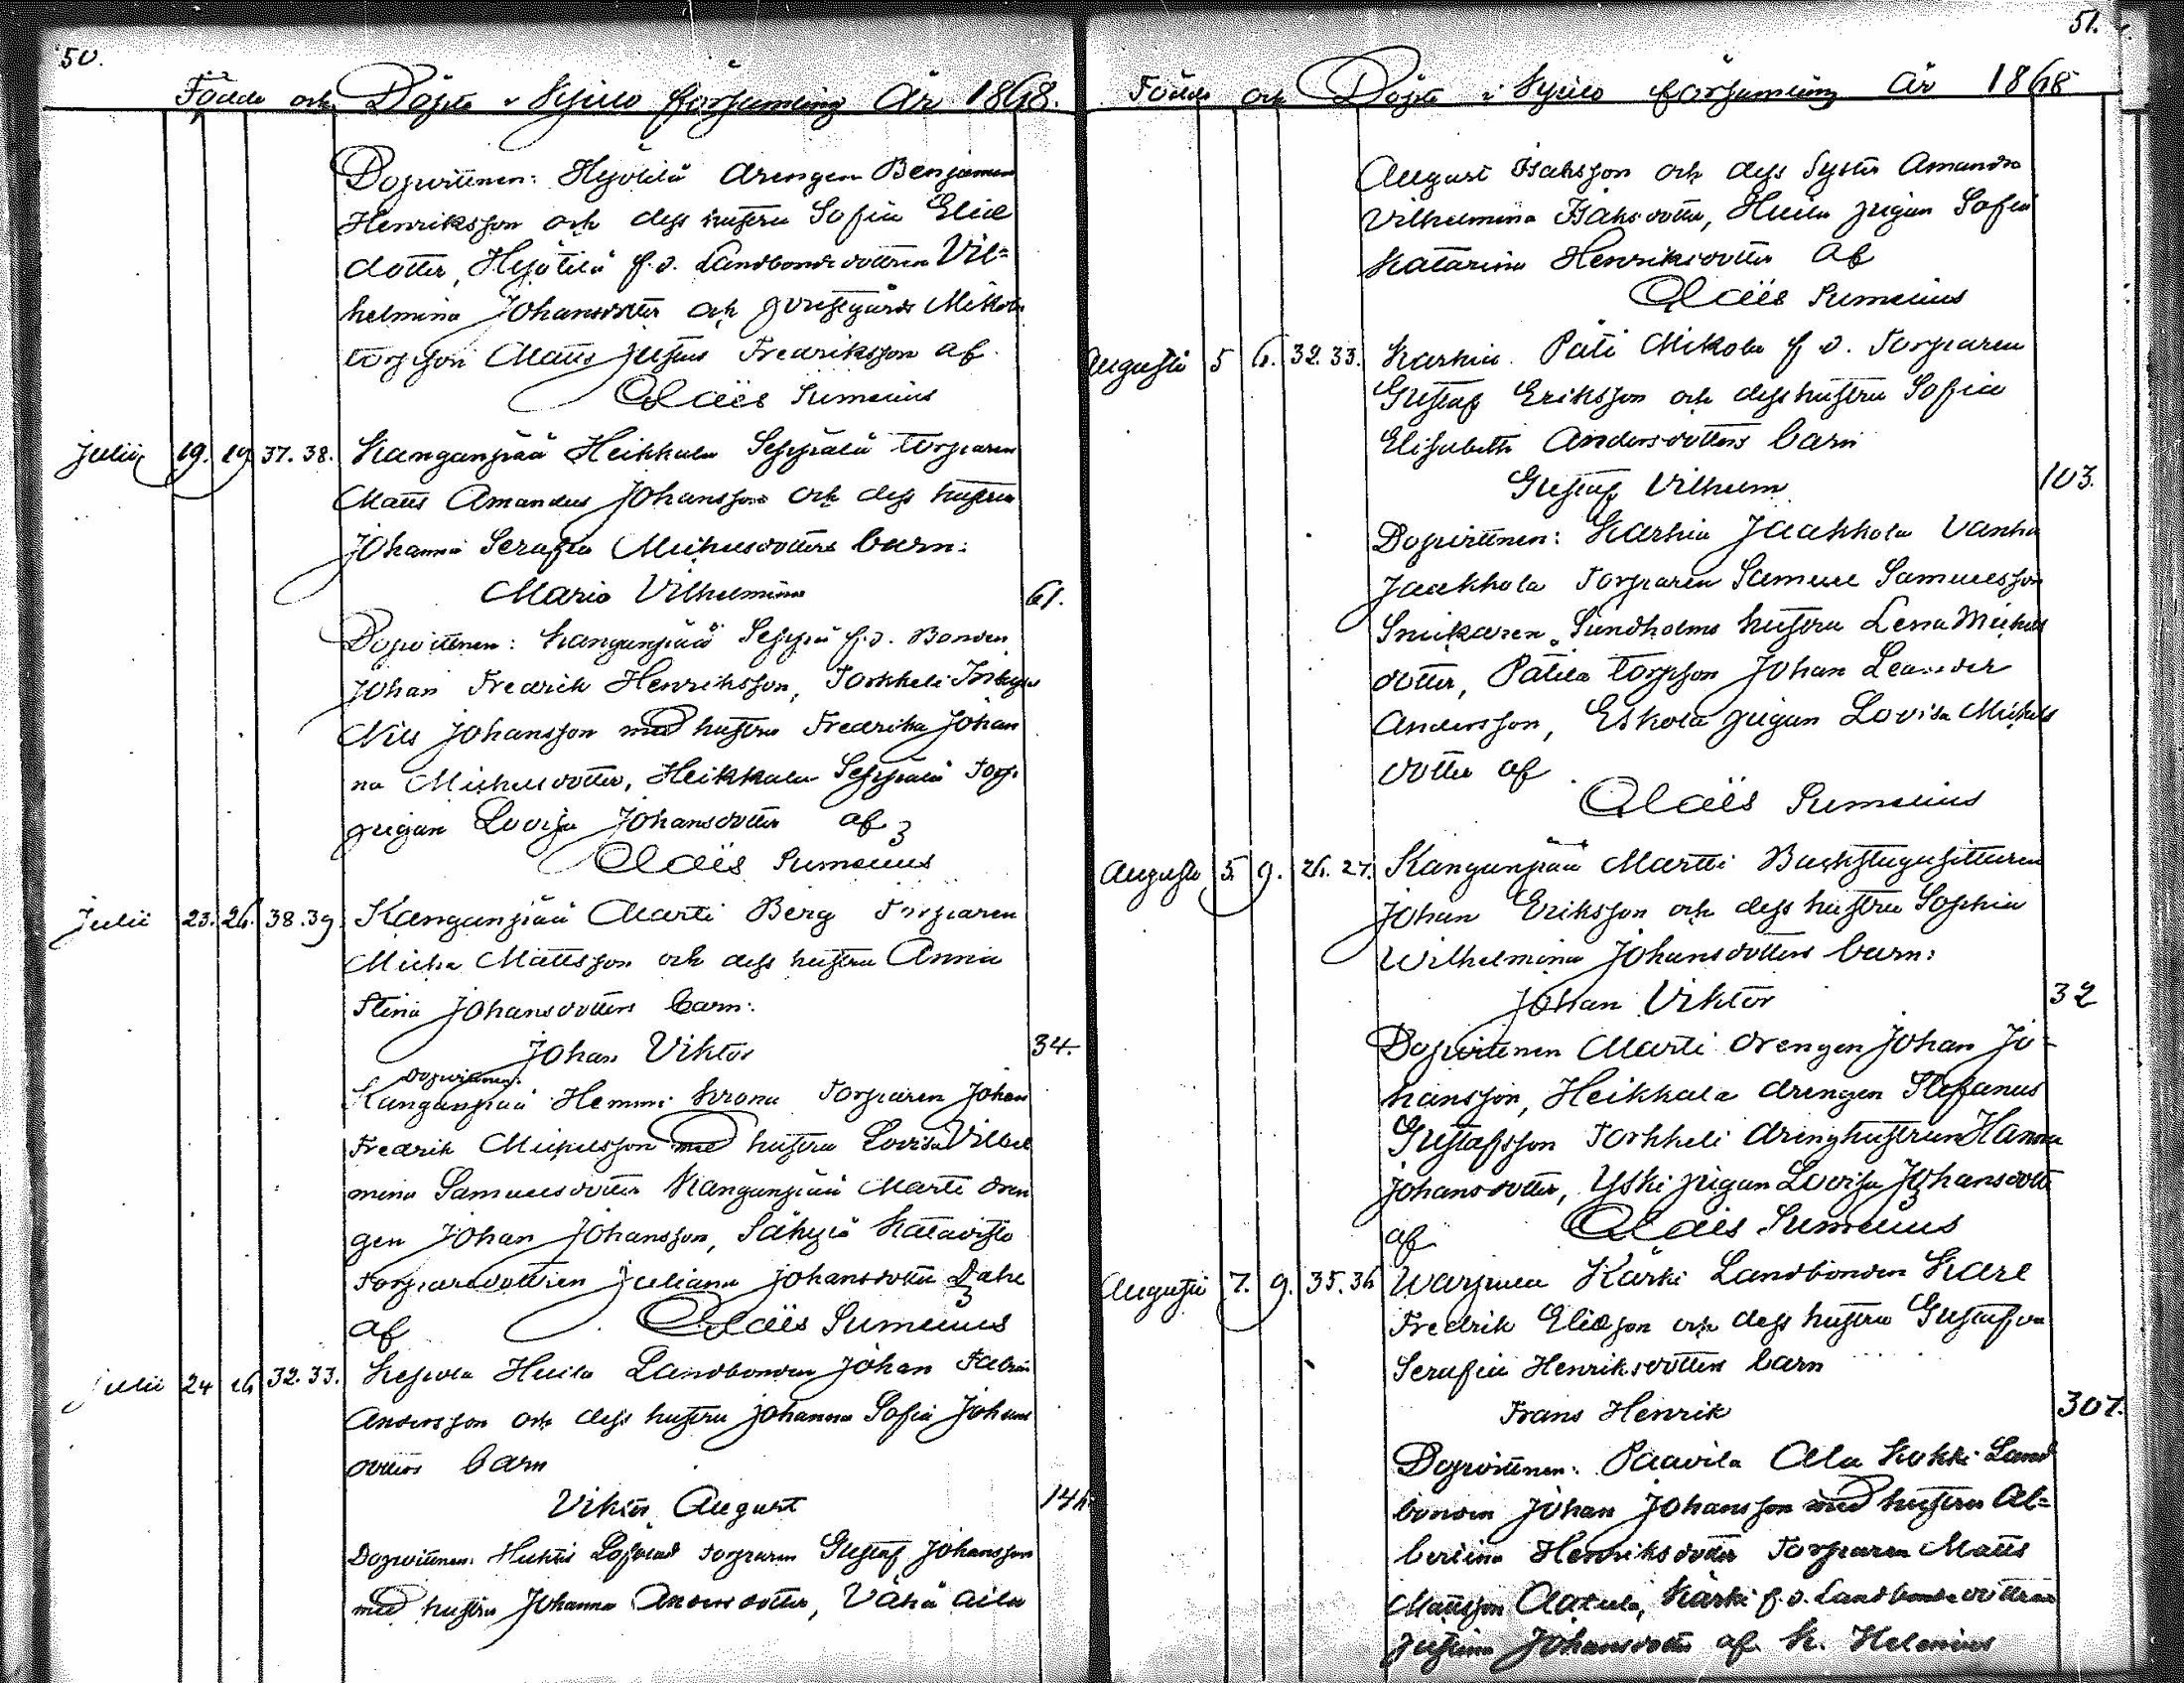 50.
Födde och Döpte i Kjulo församling År 1868.
Dopvittnen: Hyötilä drengen Benjamin
Henriksson och dess hustru Sofia Elie
dotter, Hyötilä f.d. Landbondedottren Vil=
helmina Johansdotter och prestgårds Mikola
torpson Matts Justus Fredriksson af
Claës Sumelius
Julii 19. 19. 37. 38. Kanganpää Heikkala Seppälä torparen
Matts Amandus Johansson och dess hustru
Johanna Serafia Michelsdotters barn:
Maria Vilhelmina 61.
Dopvittnen: Kanganpää Seppä f.d. Bonden
Johan Fredrik Henriksson, Torkkeli
Nils Johansson med hustru Fredrika Johan
na Michelsdotter, Heikkala Seppälä Torp
pigan Lovisa Johansdotter af
Claës Sumelius
Julii 23. 26. 38. 39 Kanganpää Martti Berg Torparen
Micha Mattsson och dess hustru Anna
Stina Johansdotters barn:
Johan Viktor 34.
Dopvittnen:
Kanganpää Hemmi Krona Torparen Johan
Fredrik Michelsson med hustru Lovisa Vilhel
mina Samuelsdotter Kanganpää Martti dren
gen Johan Johansson, Säkylä Katavisto
Torparedottren Juliana Johansdotter Dahl
af Claës Sumelius
Julii 24 26 32. 33. Kepola Huila Landbonden Johan Fabian
Andersson och dess hustru Johanna Sofia Johans
dotters barn
Viktor August 146
Dopvittnen: Huhtis torparen Gustaf Johansson
med hustru Johanna Andersdotter, Vähä Eila
51.
Födde och Döpte i Kjulo församling År 1868
August Isaksson och dess Syster Amanda
Vilhelmina Isaksdotter, Huila pigan Sofia
Katarina Henriksdotter af
Claës Sumelius
Augusti 5 6. 32. 33. Karhia Päti Mikola f d. Torparen
Gustaf Eriksson och dess hustru Sofia
Elisabeth Andersdotters barn
Gustaf Vilhelm 103.
Dopvittnen: Karhia Jaakkola Vanha
Jaakkola Torparen Samuel Samuelsson
Snickaren Sundholms hustru Lena Michels
dotter, Patila torpson Johan Leander
Andersson, Eskola pigan Lovisa Michels
dotter af
Claës Sumelius
Augusti 5. 9. 26. 27. Kanganpää Martti Backstugusittaren
Johan Eriksson och dess hustru Sophia
Wilhelmina Johansdotters barn:
Johan Viktor 32
Dopvittnen Martti drengen Johan Jo=
hansson, Heikkala drengen Stefanus
Gustafsson Torkkeli drenghustrun Hanna
Johansdotter, Yski pigan Lovisa Johansdotter
af Claës Sumelius
Augusti 7. 9. 35. 36 Warpula Kärki Landbonden Karl
Fredrik Eliasson och dess hustru Gustafva
Serafia Henriksdotters barn
Frans Henrik 307.
Dopvittnen: Paavila Ala Kokki Land
bonden Johan Johansson med hustru Al=
bertina Henriksdotter Torparen Matts
Mattsson Kärki f.d. Landbondedottren
Justina Johansdotter af K. Helenius